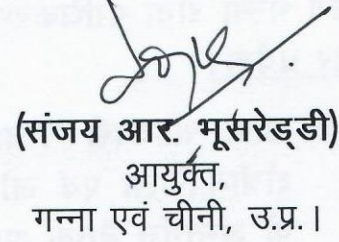 (संजय आर. भूसरेड्डी)
आयुक्त,
गन्ना एवं चीनी, उ.प्र.।